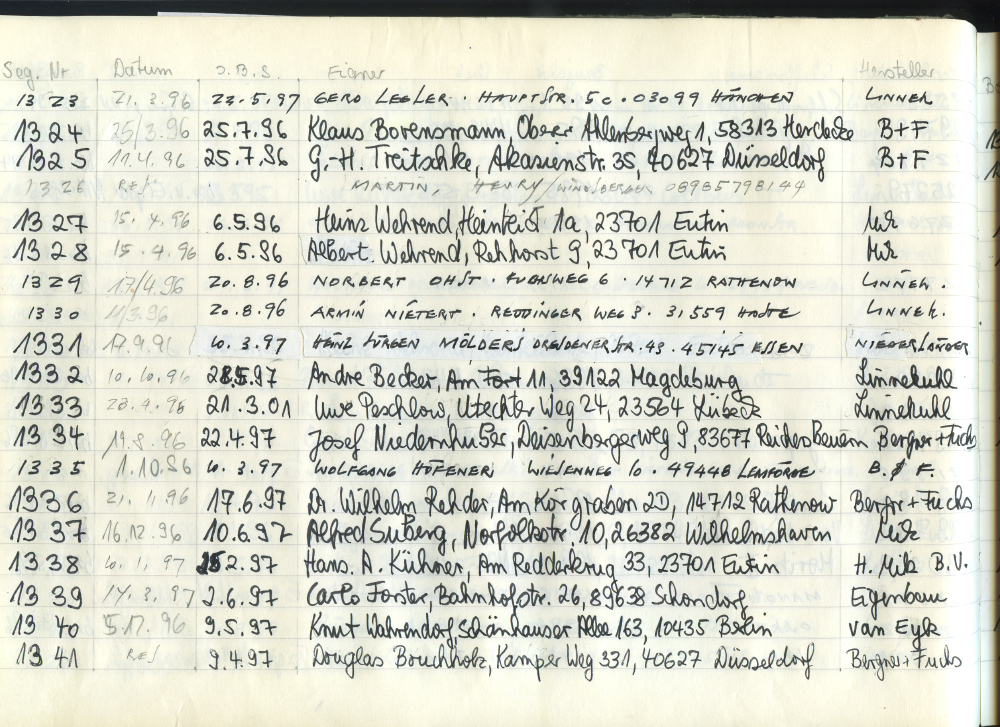 Seg. Nr Datum J.B.S. Eigner Hersteller
1323 21.3.96 22.5.97 GERD LEGLER · HAUPTSTR. 5c · 03099 HÄNCHEN LINNEK
1324 25/3.96 25.7.96 Klaus Borensmann, Oberer Ahlenbergweg 1, 58313 Herdecke B+F
1325 11.4.96 25.7.96 G.-H. Treitschke, Akasienstr. 35, 40627 Düsseldorf B+F
1326 RES. MARTIN, HENRY / 08985798144
1327 15.4.96 6.5.96 Heinz Wehrend, 1a, 23701 Eutin Mik
1328 15.4.96 6.5.96 Albert Wehrend, Rehhorst 9, 23701 Eutin Mik
1329 17/4.96 20.8.96 NORBERT OHST · FUCHSWEG 6 · 14712 RATHENOW LINNEK.
1330 11/3.96 20.8.96 ARMIN NIETERT · REDDINGER WEG 3 · 31559 LINNEK.
1331 17.9.96 10.3.97 HEINZ JÜRGEN MÖLDERS DRESDENERSTR. 43 · 45145 ESSEN NIEDERLÄNDER
1332 10.10.96 28.5.97 Andre Becker, Am Fort 11, 39122 Magdeburg Linnekuhl
1333 28.4.96 21.3.01 Uwe Peschlow, Utechter Weg 24, 23564 Lübeck Linnekuhl
1334 19.8.96 22.4.97 Josef Niedernhuber, Deisenbergerweg 9, 83677 Bergner+Fuchs
1335 1.10.96 10.3.97 WOLFGANG HÖFENER WIESENWEG 10 · 49448 LEMFÖRDE B. & F.
1336 21.1.96 17.6.97 Dr. Wilhelm Rehder, Am Körgraben 2D, 14712 Rathenow Bergnr+Fuchs
1337 16.12.96 10.6.97 Alfred Suberg, Norfolkstr. 10, 26382 Wilhelmshaven Mik
1338 10.1.97 2.97 Hans. A. Kühner, Am Redderkrug 33, 23701 Eutin H. Mik B.V.
1339 14.3.97 2.6.97 Carlo Forster, Bahnhofstr. 26, 89638 Schondorf Eigenbau
1340 5.12.96 9.5.97 Knut Wahrendorf, Schönhauser Allee 163, 10435 Berlin van Eyk
1341 RES 9.4.97 Douglas Bouchholz, Kamper Weg 331, 40627 Düsseldorf Bergner+Fuchs